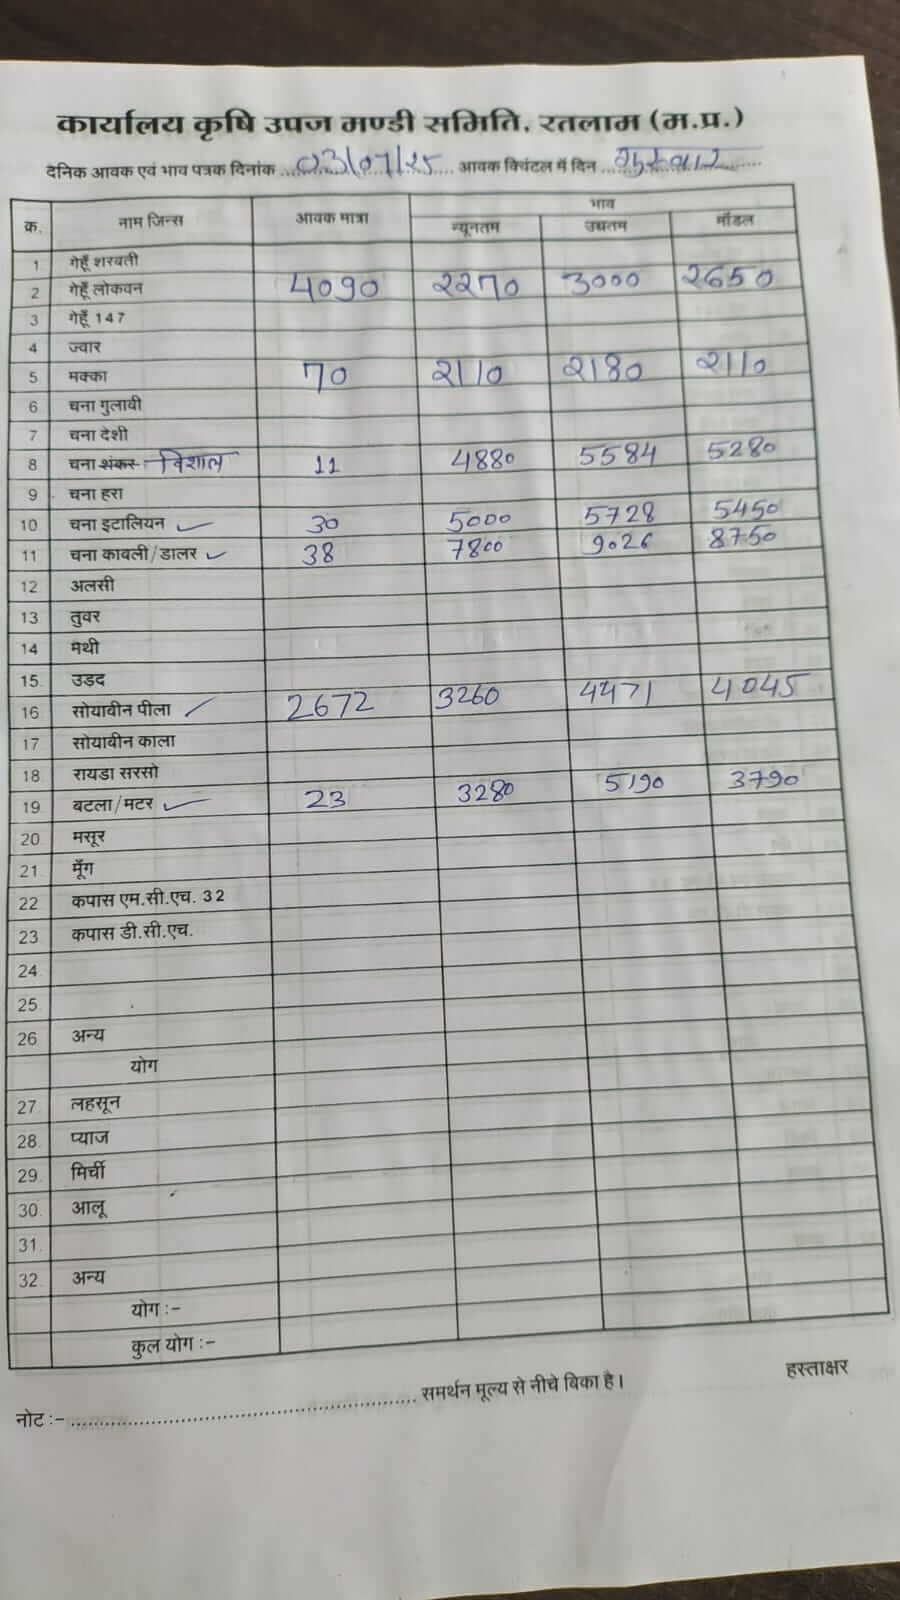 कार्यालय कृषि उपज मण्डी समिति, रतलाम (म.प्र.)
दैनिक आवक एवं भाव पत्रक दिनांक ...03/07/25.... आवक क्विंटल में दिन ...गुरुवार......
क्र. नाम जिन्स आवक मात्रा भाव
न्यूनतम उच्चतम मॉडल
1 गेहूँ शरबती
2 गेहूँ लोकवन 4090 २२70 3000 २650
3 गेहूँ 147
4 ज्वार
5 मक्का 70 २110 २180 २110
6 चना गुलाबी
7 चना देशी
8 चना शंकर विशाल 11 4880 5584 5280
9 चना हरा
10 चना इटालियन ✓ 30 5000 5728 5450
11 चना काबली/डालर ✓ 38 7800 9026 8750
12 अलसी
13 तुवर
14 मैथी
15. उड़द
16 सोयाबीन पीला ✓ 2672 3260 4471 4045
17 सोयाबीन काला
18 रायडा सरसो
19 बटला/मटर ✓ 23 3280 5190 3790
20 मसूर
21. मूँग
22 कपास एम.सी.एच. 32
23 कपास डी.सी.एच.
24.
25.
26 अन्य
योग
27. लहसून
28. प्याज
29. मिर्ची
30. आलू
31.
32. अन्य
योग :-
कुल योग :-
नोट :- ........................................ समर्थन मूल्य से नीचे बिका है। हस्ताक्षर